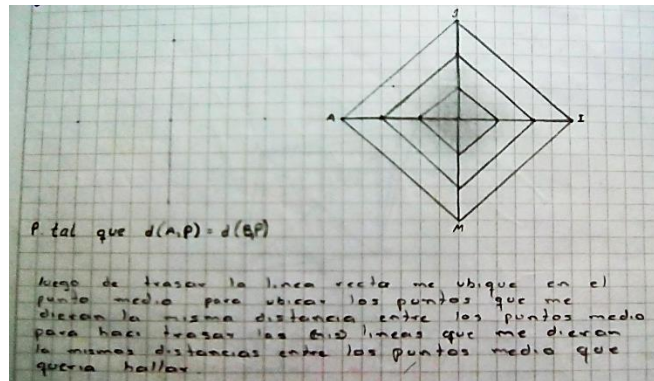 J
A
I
M
P. tal que d(A,P) = d(B,P)
luego de trasar la linea recta me ubique en el
punto medio para ubicar los puntos que me
dieran la misma distancia entre los puntos medio
para haci trasar las lineas que me dieran
la mismas distancias entre los puntos medio que
queria hallar.